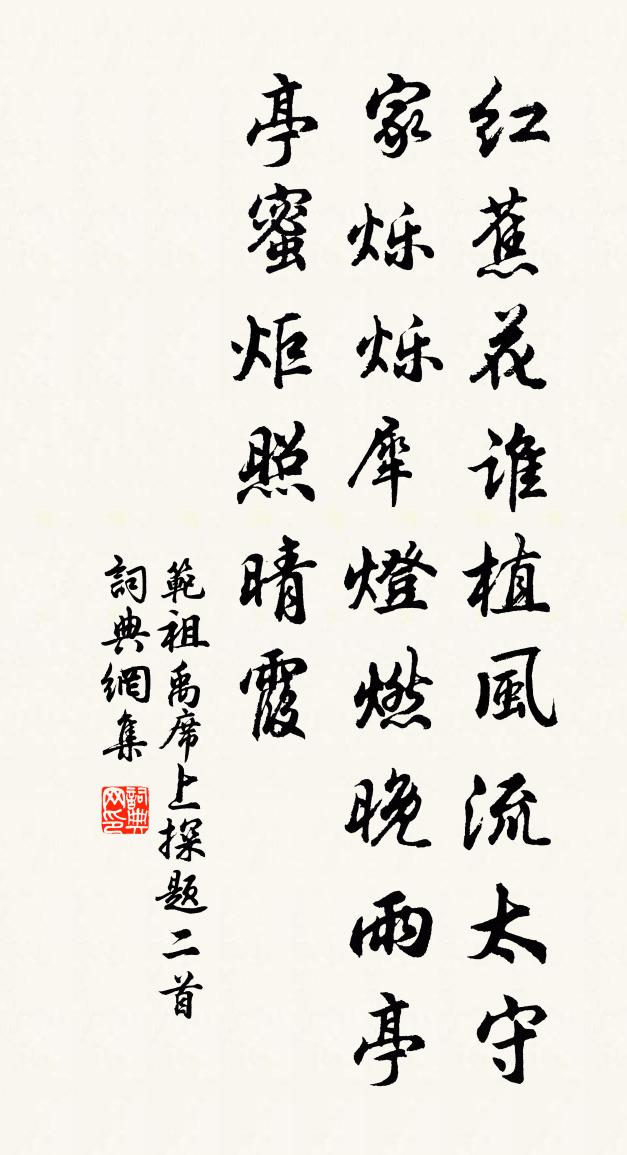 红蕉花谁植風流太守
家烁烁犀燈燃晚雨亭
亭蜜炬照晴霞
範祖禹席上探题二首
詞典網集
詞典网印